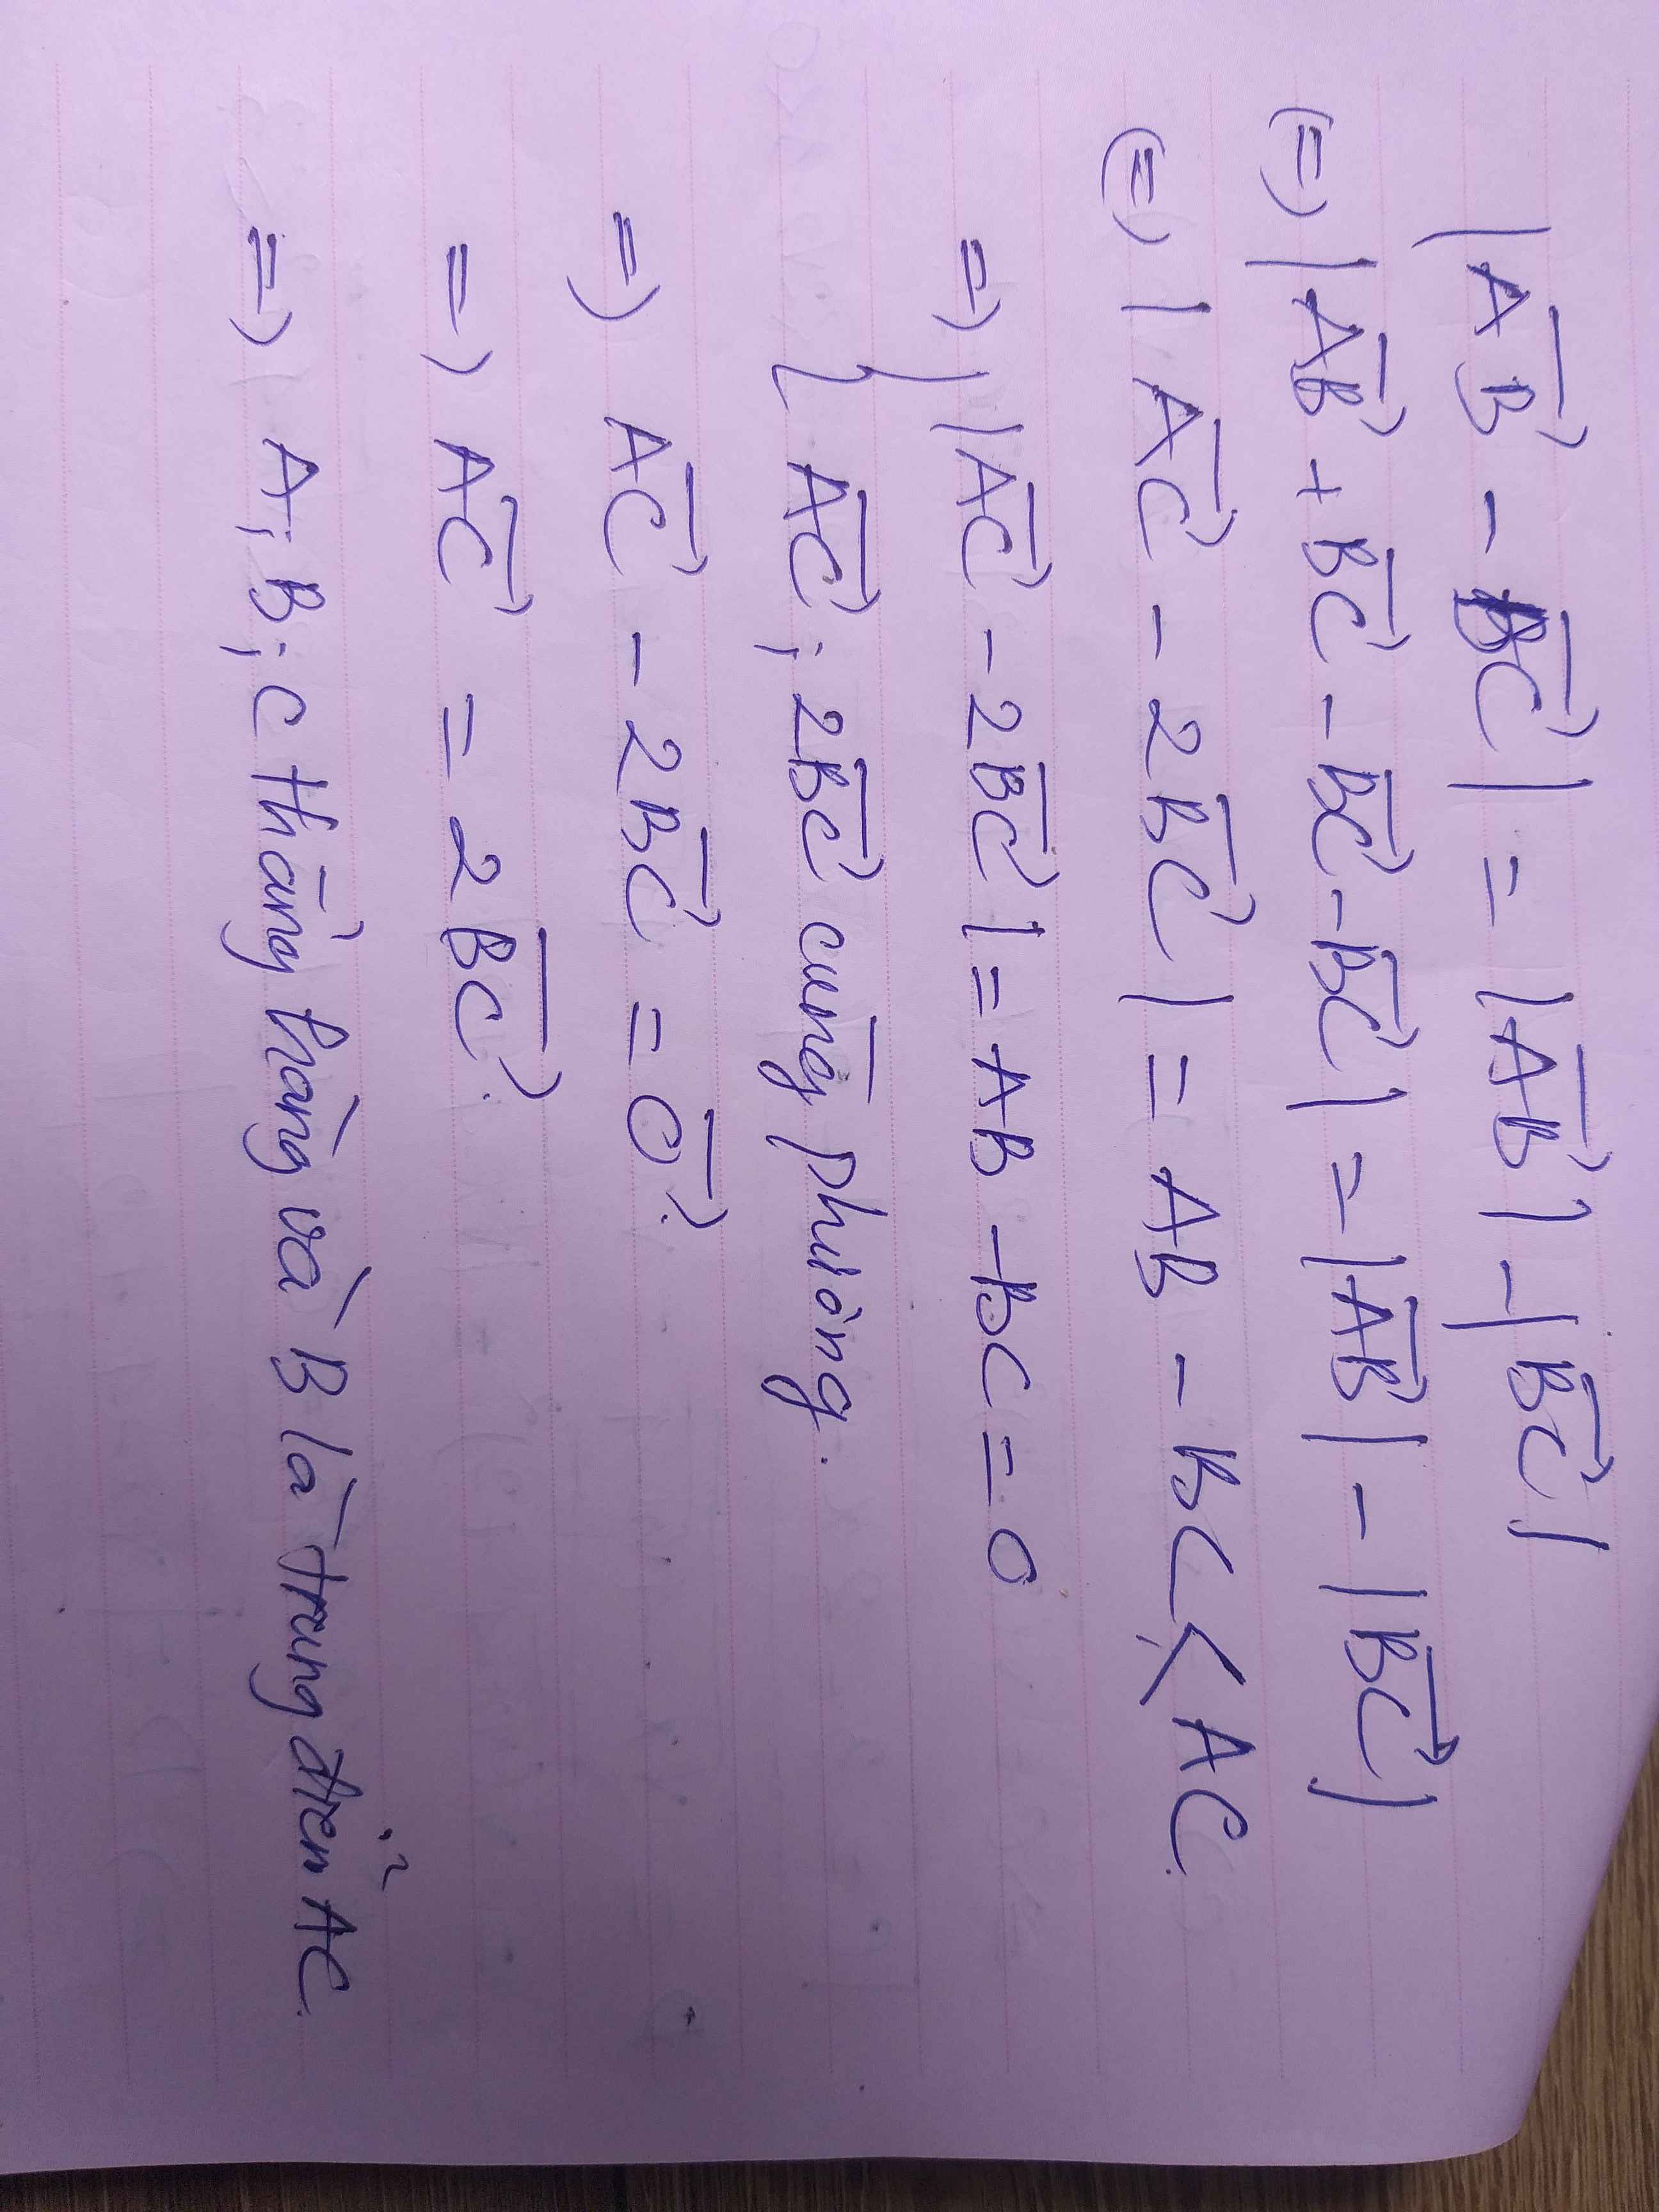 |AB⃗ - BC⃗| = |AB⃗| - |BC⃗|
(=) |AB⃗ + BC⃗ - BC⃗ - BC⃗| = |AB⃗| - |BC⃗|
(=) |AC⃗ - 2BC⃗| = AB - BC < AC
=) { |AC⃗ - 2BC⃗| = AB - BC = 0
AC⃗; 2BC⃗ cùng phương.
=) AC⃗ - 2BC⃗ = 0⃗.
=) AC⃗ = 2BC⃗.
=) A; B; C thẳng hàng và B là trung điểm AC